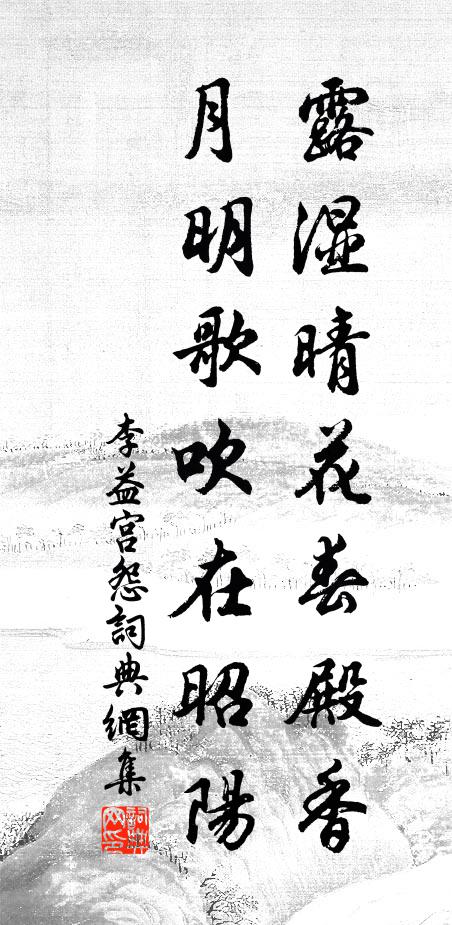 露濕晴花春殿香
月明歌吹在昭陽
李益宮怨詞典網集